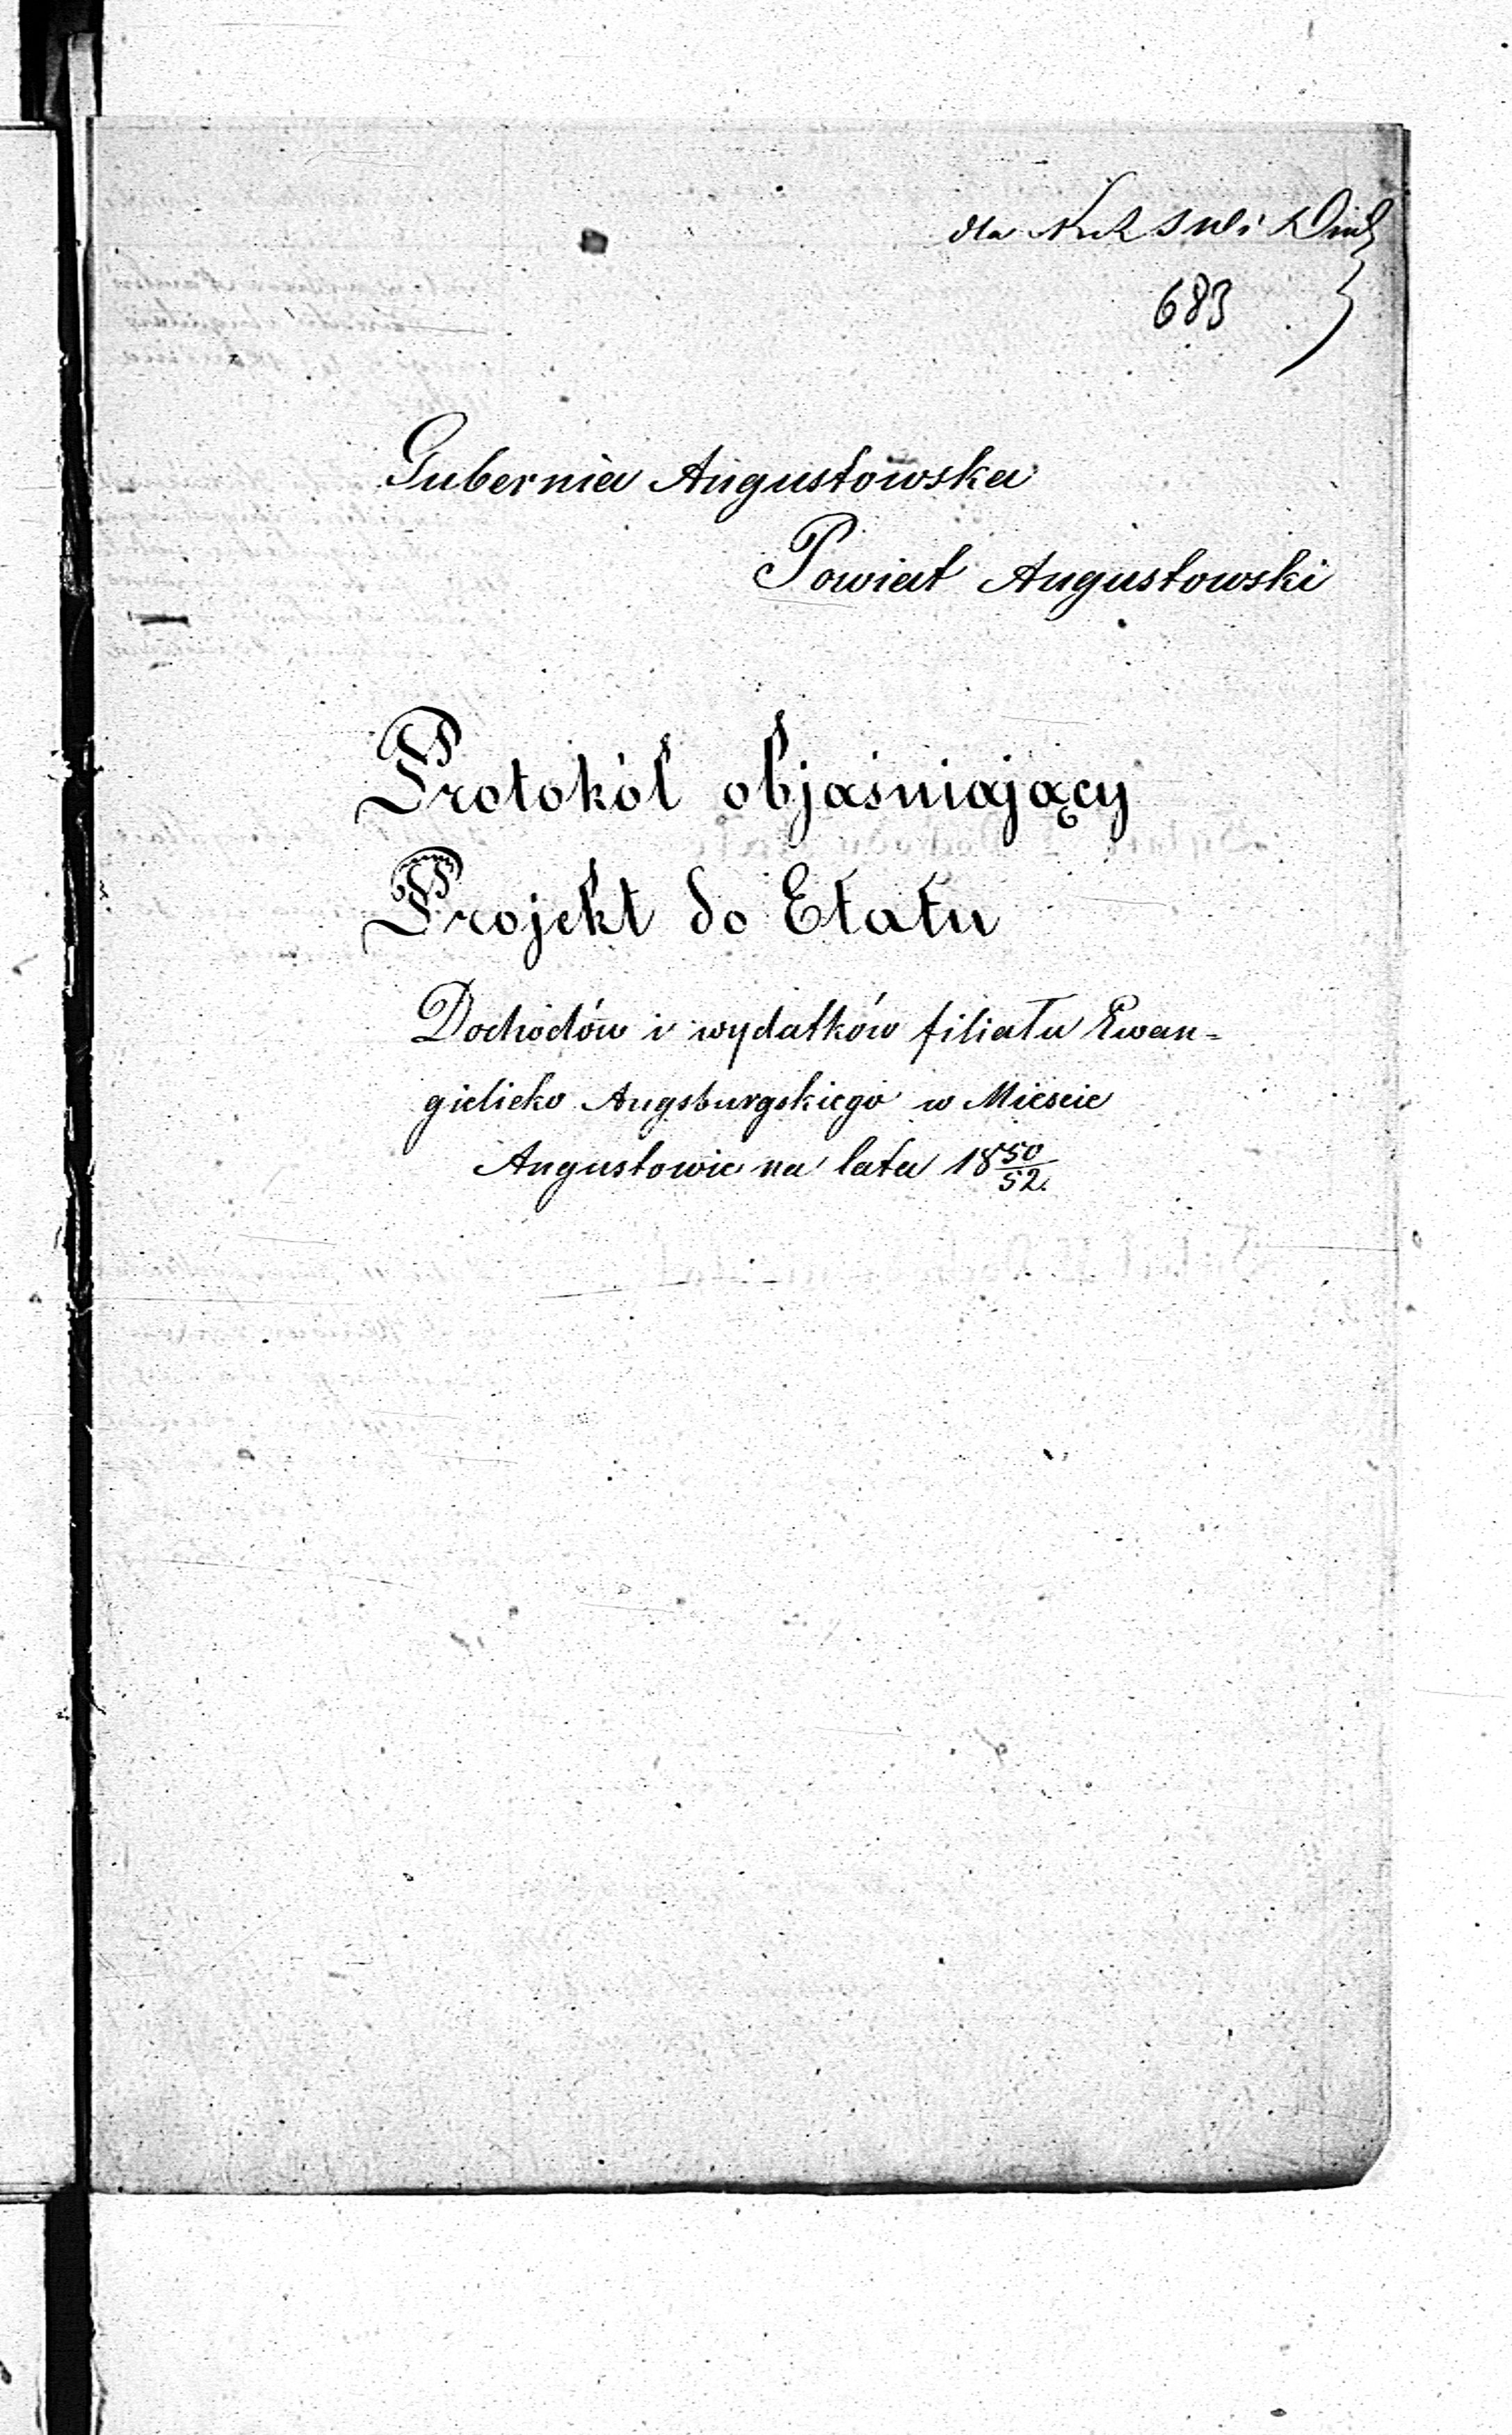 dla
683
Gubernia Augustowska
Powiat Augustowski
Protokół objaśniający
Projekt do Etatu
Dochodów i wydatków filiału Ewan=
gielicko Augsburgskiego w Miescie
Augustowie na lata 18 50/52.